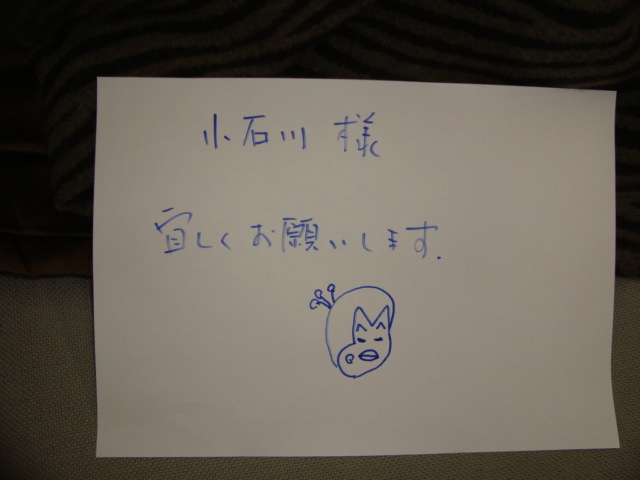 小石川 様
宜しくお願いします.